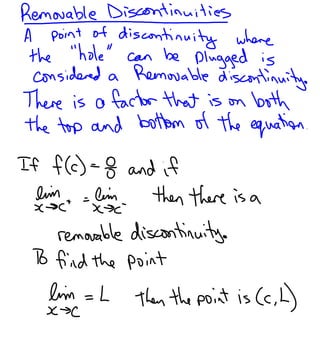 Removable Discontinuities
A point of discontinuity where
the "hole" can be plugged is
considered a Removable discontinuity.
There is a factor that is on both
the top and bottom of the equation.
If f(c) = 0/0 and if
lim x→c⁺ = lim x→c⁻ then there is a
removable discontinuity.
To find the point
lim x→c = L then the point is (c,L)